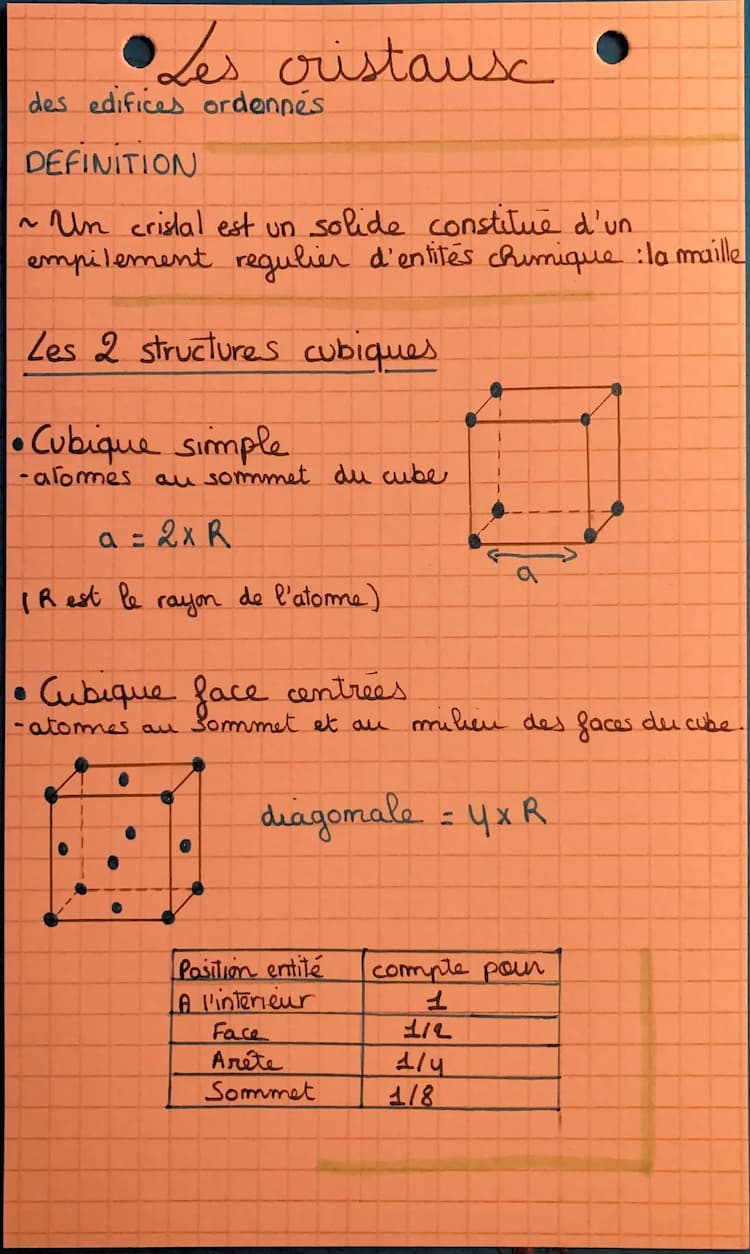 Les cristaux
des edifices ordonnés
DEFINITION
~ Un cristal est un solide constitué d'un
empilement regulier d'entités chimique : la maille
Les 2 structures cubiques
• Cubique simple
- atomes au sommet du cube
a = 2 x R
a
( R est le rayon de l'atome )
• Cubique face centrées
- atomes au sommet et au milieu des faces du cube.
diagonale = 4 x R
Position entité compte pour
A l'intérieur 1
Face 1/2
Arête 1/4
Sommet 1/8